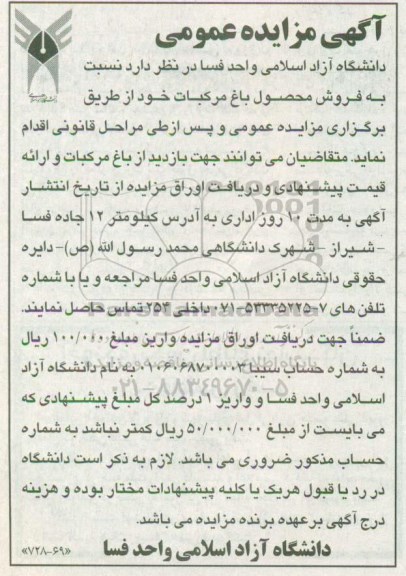 آگهی مزایده عمومی
دانشگاه آزاد اسلامی واحد فسا در نظر دارد نسبت
به فروش محصول باغ مرکبات خود از طریق
برگزاری مزایده عمومی و پس از طی مراحل قانونی اقدام
نماید. متقاضیان می توانند جهت بازدید از باغ مرکبات و ارائه
قیمت پیشنهادی و دریافت اوراق مزایده از تاریخ انتشار
آگهی به مدت ۱۰ روز اداری به آدرس کیلومتر ۱۲ جاده فسا
- شیراز - شهرک دانشگاهی محمد رسول الله (ص) - دایره
حقوقی دانشگاه آزاد اسلامی واحد فسا مراجعه و یا با شماره
تلفن های ۷-۰۷۱-۵۳۳۳۵۲۲۵ داخلی ۲۵۴ تماس حاصل نمایند.
ضمناً جهت دریافت اوراق مزایده واریز مبلغ ۱۰۰/۰۰۰ ریال
به شماره حساب سیبا به نام دانشگاه آزاد
اسلامی واحد فسا و واریز ۱ درصد کل مبلغ پیشنهادی که
می بایست از مبلغ ۵۰/۰۰۰/۰۰۰ ریال کمتر نباشد به شماره
حساب مذکور ضروری می باشد. لازم به ذکر است دانشگاه
در رد یا قبول هریک یا کلیه پیشنهادات مختار بوده و هزینه
درج آگهی برعهده برنده مزایده می باشد.
دانشگاه آزاد اسلامی واحد فسا
«۷۲۸-۶۹»
۰۲۱-۸۸۳۴۹۶۷۰-۵